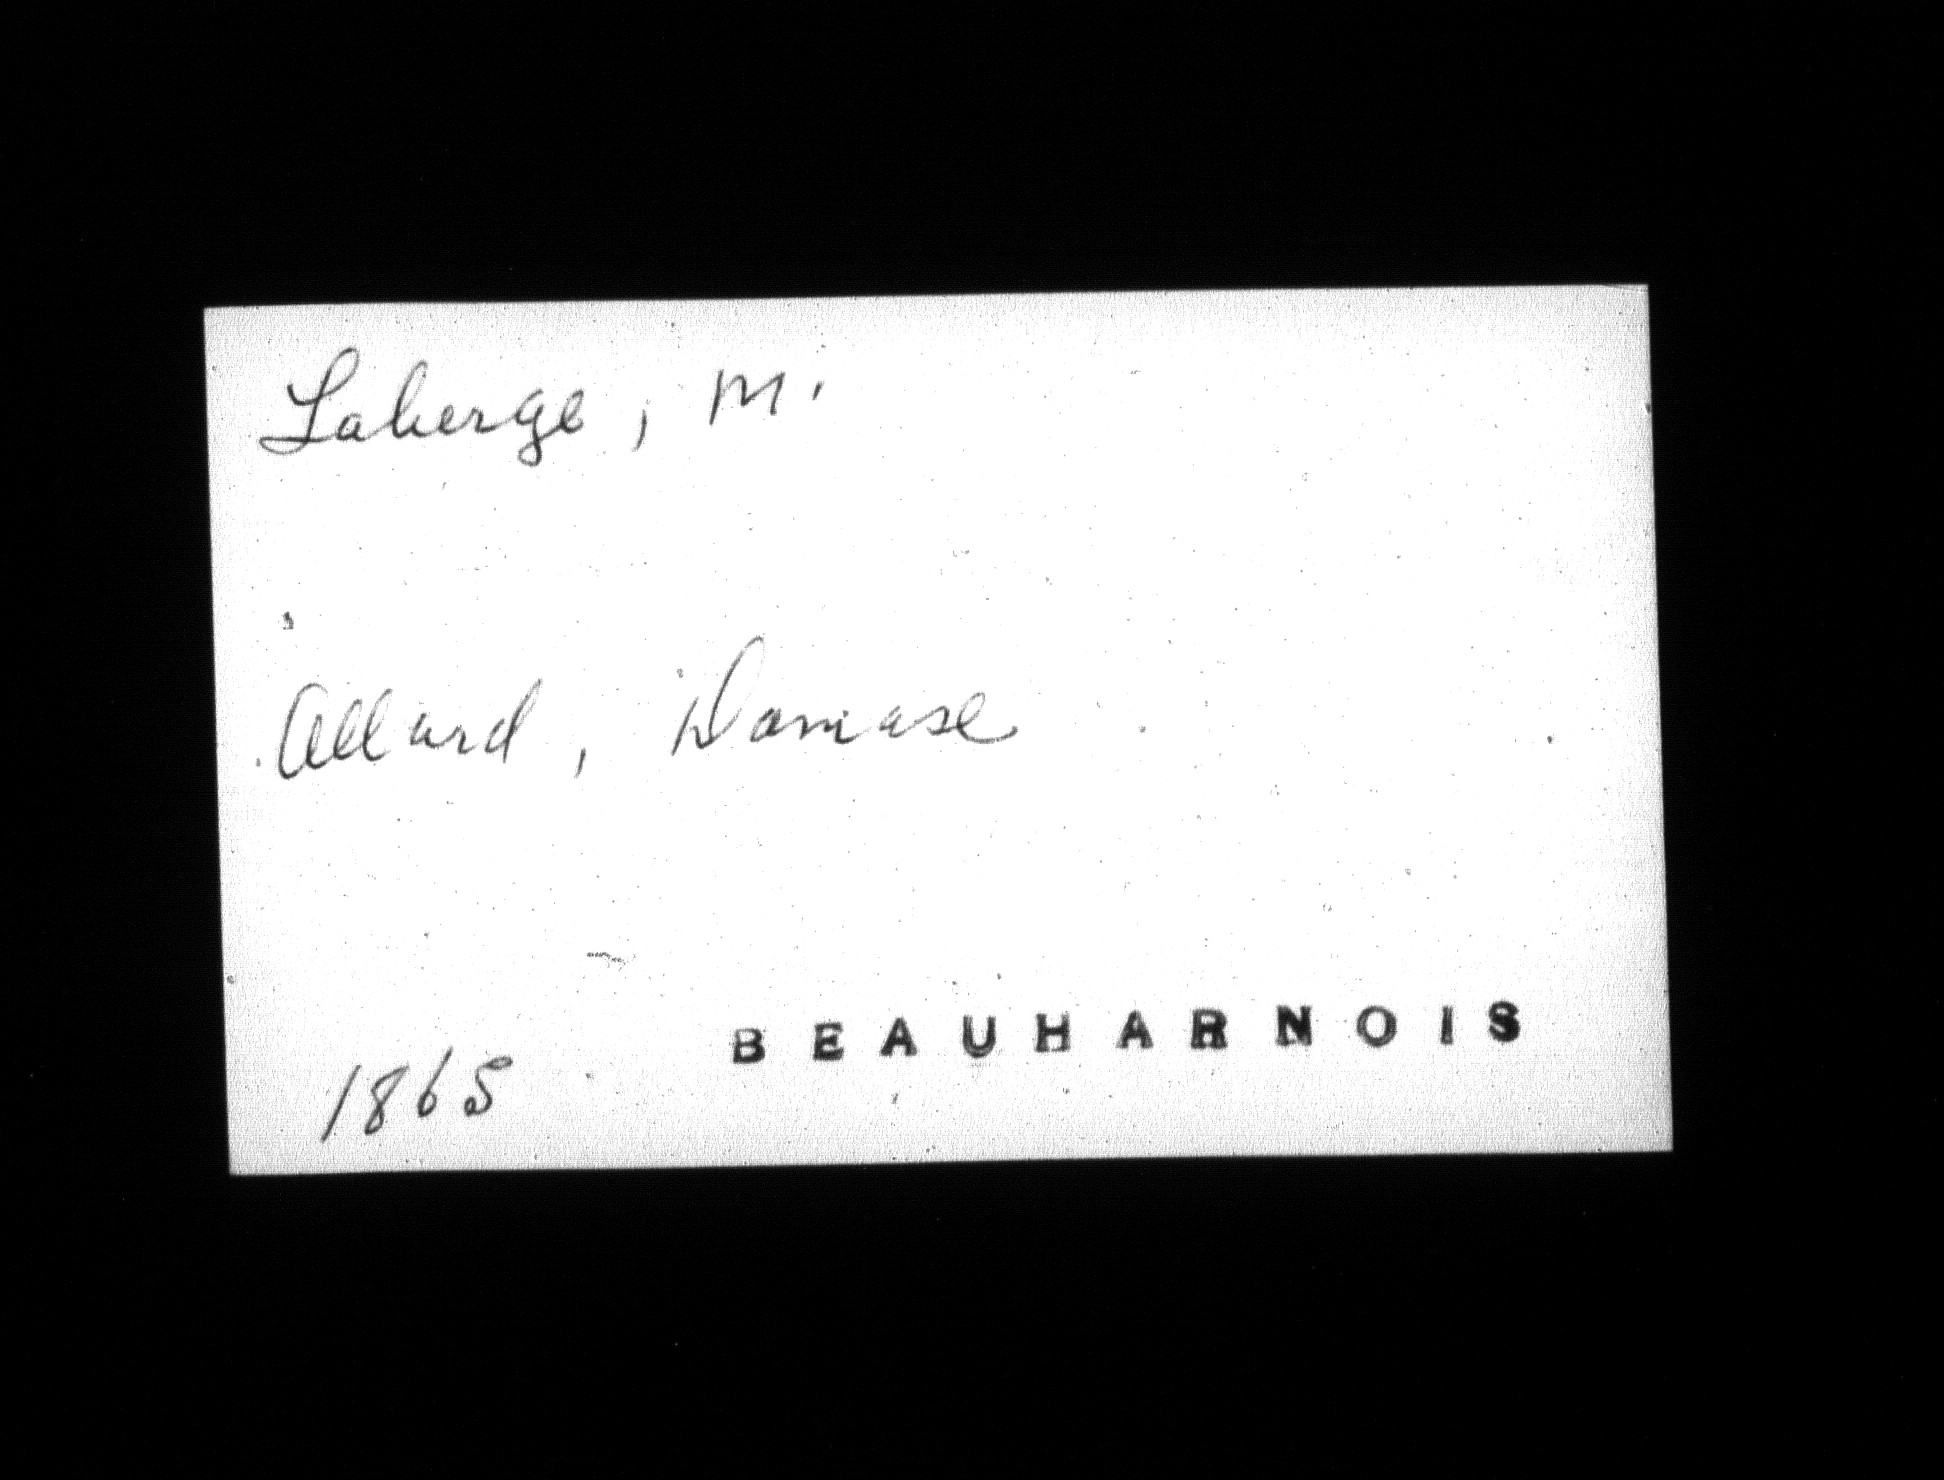 Laberge, M.
Allard, Damase
BEAUHARNOIS
1865